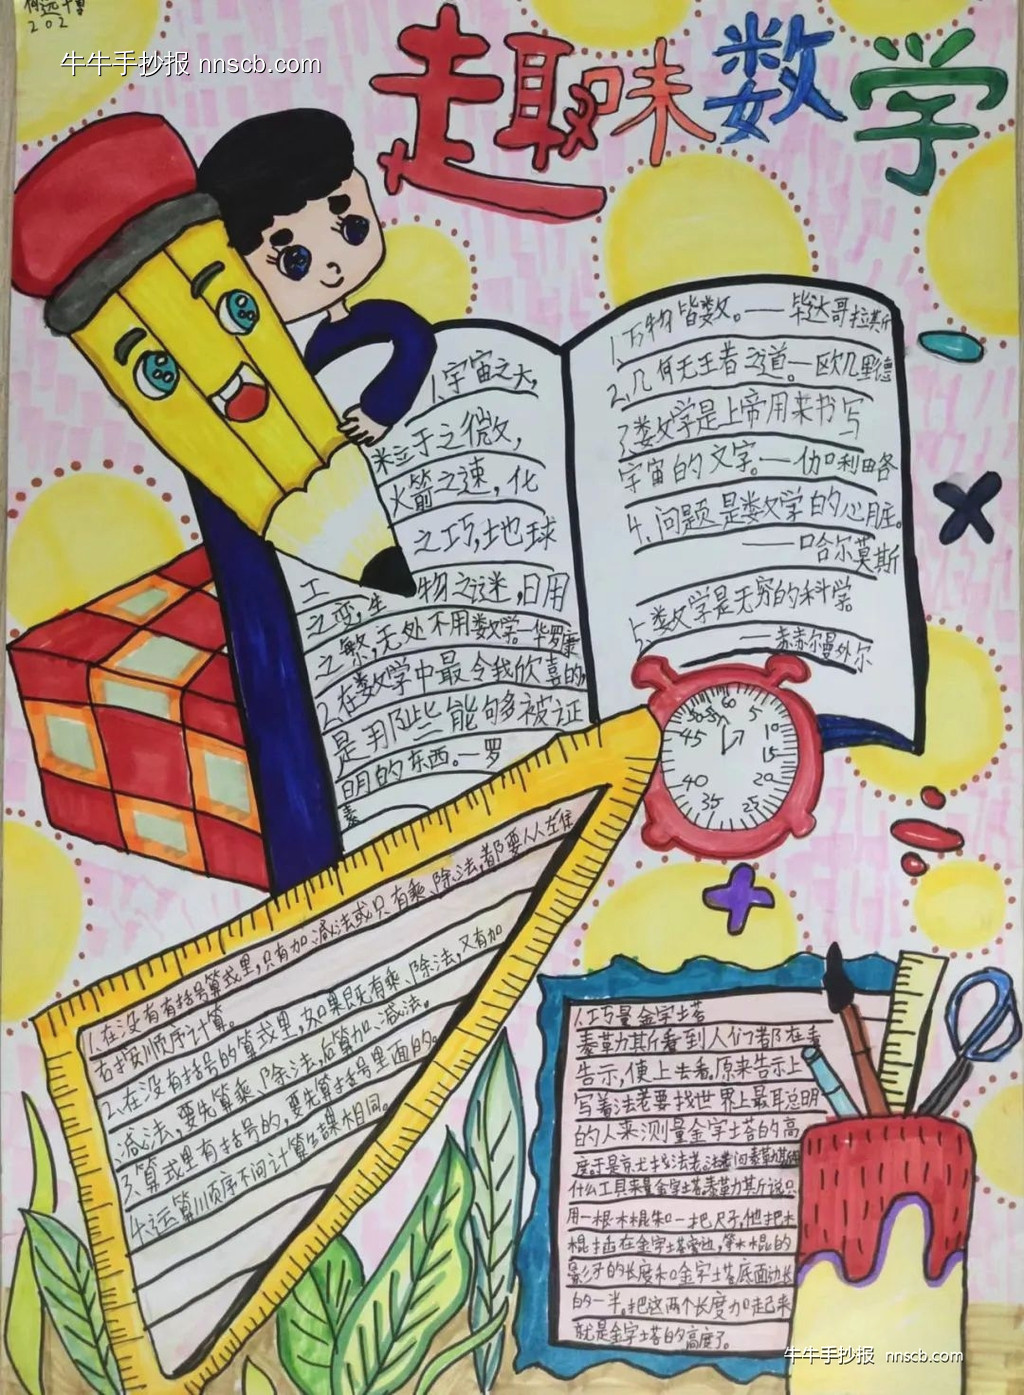 202
牛牛手抄报 nnscb.com
趣味数学
1.宇宙之大,
粒子之微,
火箭之速,化
工之巧,地球
之变,生物之谜,日用
之繁,无处不用数学。—华罗庚
2.在数学中最令我欣喜的,
是那些能够被证
明的东西。—罗
素
1、万物皆数。——毕达哥拉斯
2、几何无王者之道。—欧几里德
3数学是上帝用来书写
宇宙的文字。—伽利略
4、问题是数学的心脏。
——哈尔莫斯
5.数学是无穷的科学。
——赫赫尔曼外尔
60
5
10
15
20
25
35
40
45
50
55
1.在没有有括号算式里,只有加、减法或只有乘、除法,都要从左往
右按顺序计算。
2、在没有括号的算式里,如果既有乘、除法,又有加
、减法,要先算乘、除法,后算加、减法。
3、算式里有括号的,要先算括号里面的。
4、运算顺序不同计算结果不相同。
1.巧量金字塔
泰勒斯看到人们都在看
告示,便上去看。原来告示上
写着法老要找世界上最聪明
的人来测量金字塔的高
度于是就找法老。法老问泰勒斯用
什么工具来量金字塔。泰勒斯说只
用一根木棍和一把尺子,他把木
棍插在金字塔旁边,等木棍的
影子的长度和金字塔底面边长
的一半。把这两个长度加起来
就是金字塔的高度了。
牛牛手抄报 nnscb.com